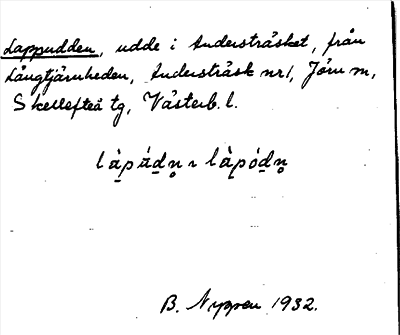 Lappudden, udde i Andersträsket, från
Långtjärnheden, Andersträsk nr 1, Jörn sn,
Skellefteå tg, Västerb. l.
làpádn̥ ~ làpódn̥
B. Nyman 1932.